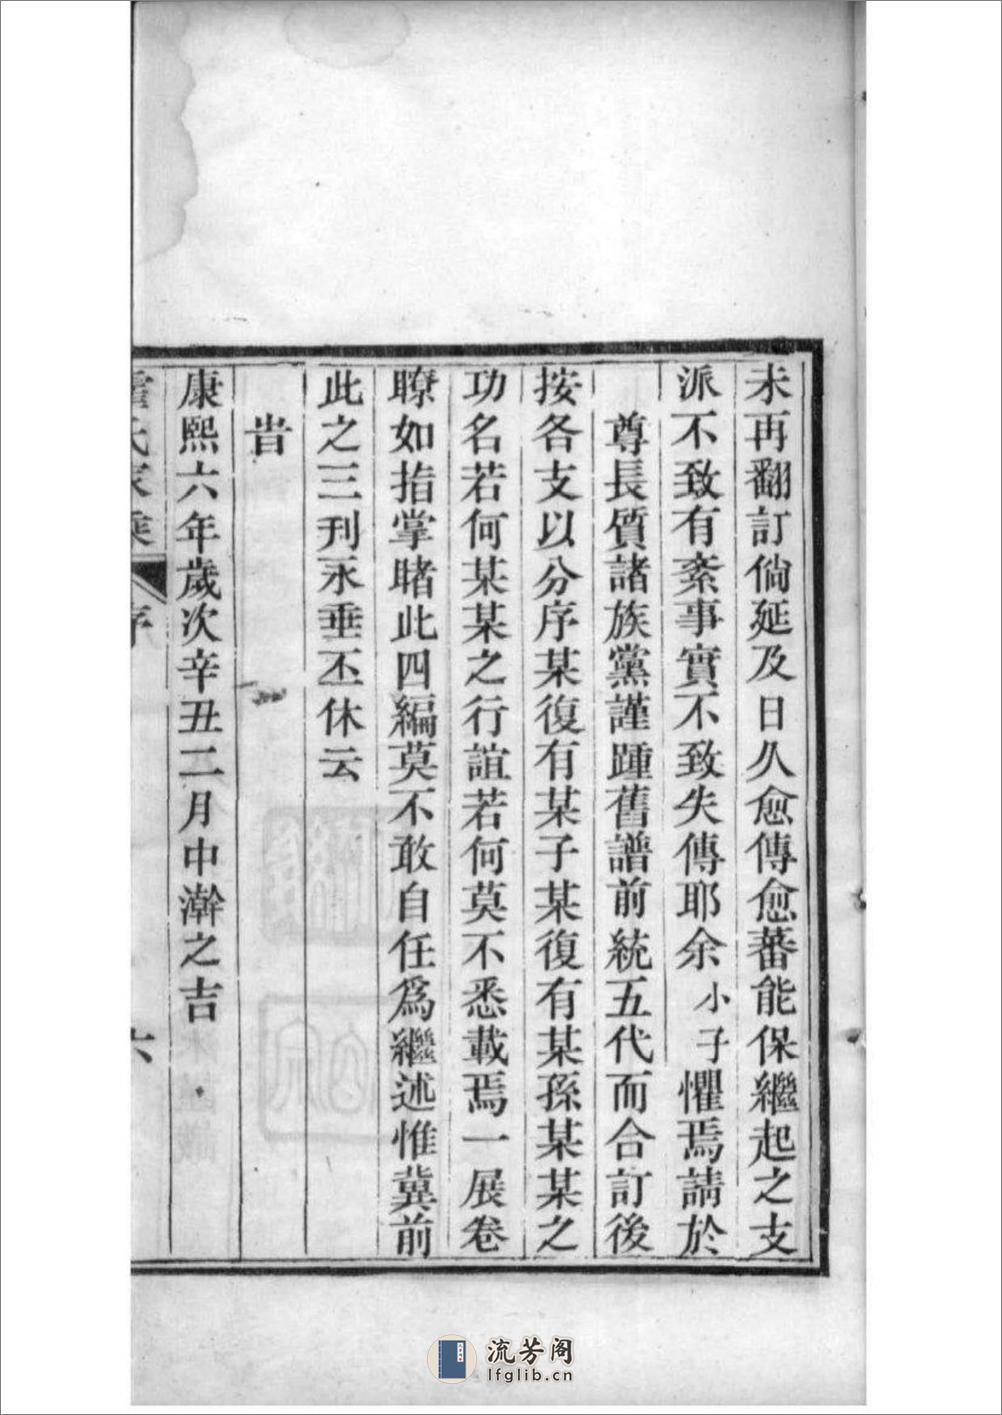 未再翻訂倘延及日久愈傳愈蕃能保繼起之支
派不致有紊事實不致失傳耶余小子懼焉請於
尊長質諸族黨謹踵舊譜前統五代而合訂後
按各支以分序某復有某子某復有某孫某某之
功名若何某某之行誼若何莫不悉載焉一展卷
瞭如指掌睹此四編莫不敢自任爲繼述惟冀前
此之三刊永垂丕休云
旹
康熙六年歲次辛丑二月中澣之吉
氏家乘 序 六
流芳阁
lfglib.cn